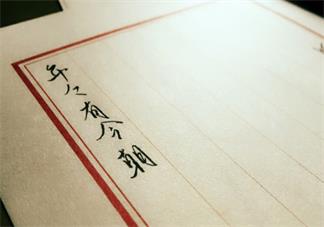 年年有今朝